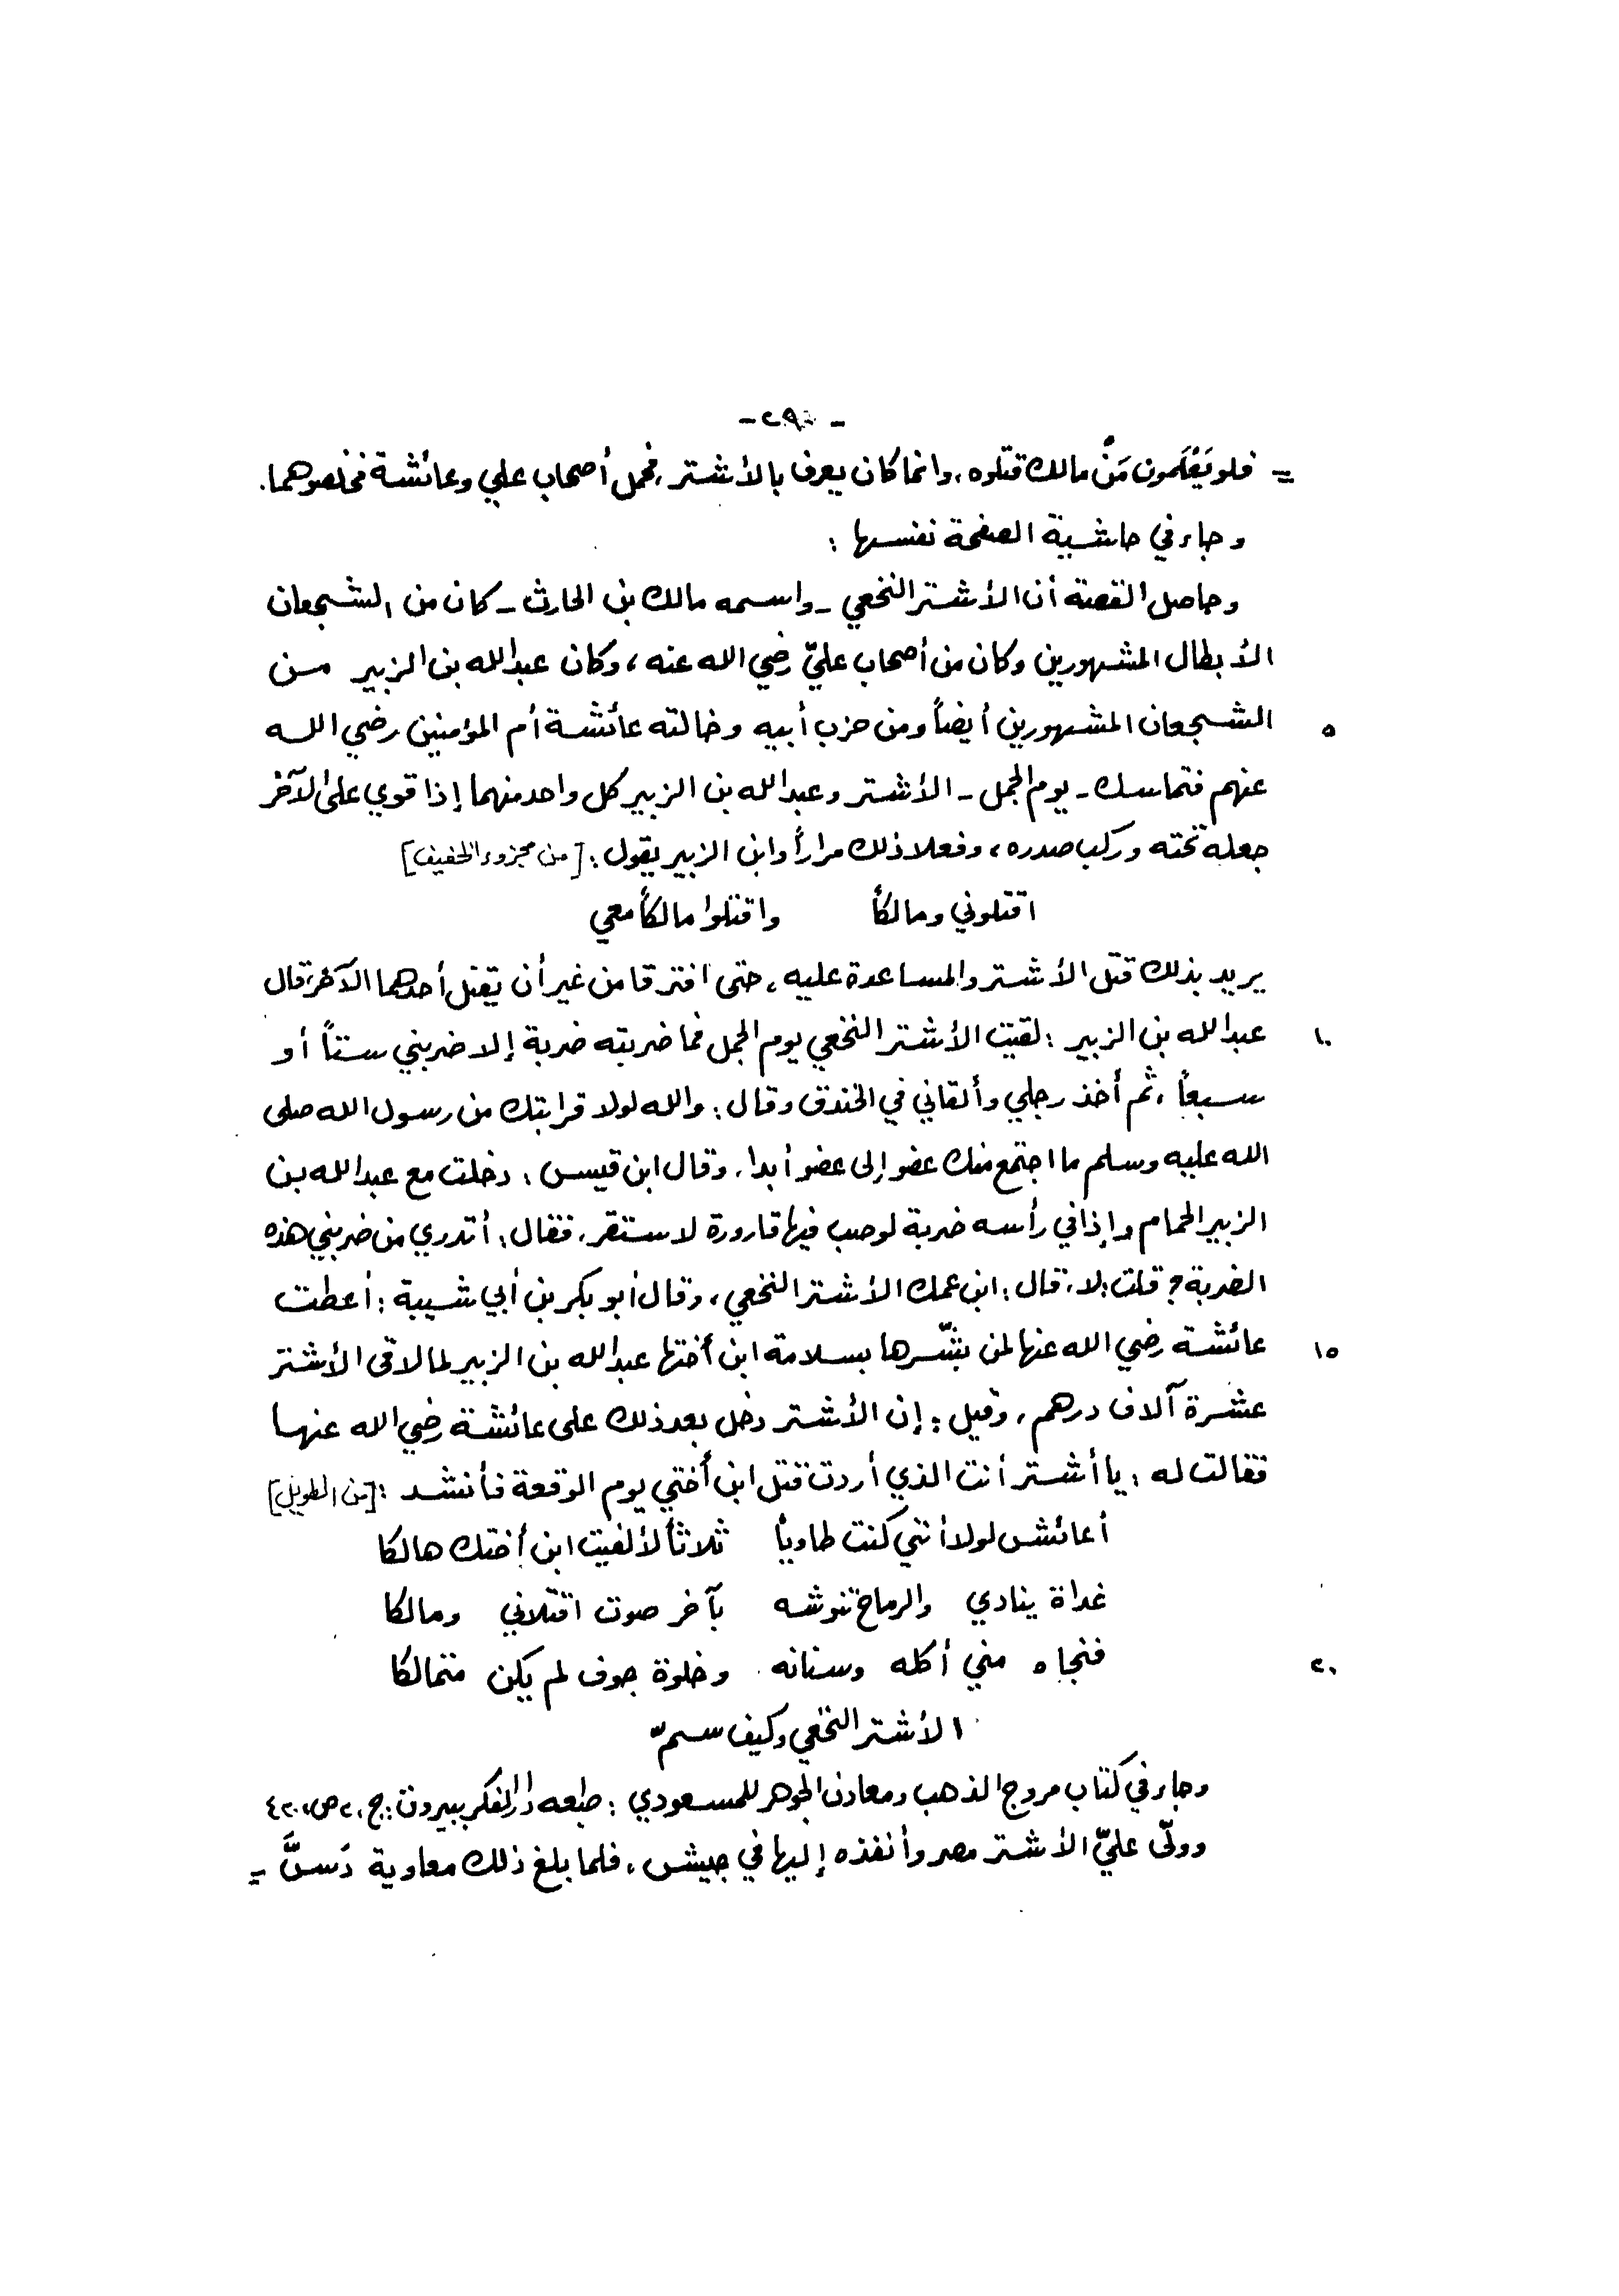 = فلو يَعْلَمون مَنْ مالك قتلوه، وانما كان يعرف بالأشتر، فحمل أصحاب علي وعائشة فخلصوهما.
وجاء في حاشية الصفحة نفسها :
وحاصل القصة أن الأشتر النخعي - واسمه مالك بن الحارث - كان من الشجعان
الأبطال المشهورين وكان من أصحاب عليّ رضي الله عنه، وكان عبدالله بن الزبير من
٥ الشجعان المشهورين أيضاً ومن حزب أبيه وخالته عائشة أم المؤمنين رضي الله
عنهم فتماسك - يوم الجمل - الأشتر وعبدالله بن الزبير كل واحد منهما إذا قوي على الآخر
جعله تحته وركب صدره، وفعلا ذلك مراراً وابن الزبير يقول : [من مجزوء الخفيف]
اقتلوني ومالكاً واقتلوا مالكاً معي
يريد بذلك قتل الأشتر والمساعدة عليه، حتى افترقا من غير أن يقتل أحدهما الآخر، قال
١٠ عبدالله بن الزبير : لقيت الأشتر النخعي يوم الجمل فما ضربته ضربة إلا ضربني ستاً أو
سبعاً، ثم أخذ رجلي وألقاني في الخندق وقال : والله لولا قرابتك من رسول الله صلى
الله عليه وسلم ما اجتمع منك عضو إلى عضو أبدا، وقال ابن قيس : دخلت مع عبدالله بن
الزبير الحمام وإذا في رأسه ضربة لو صب فيها قارورة لاستقر، فقال : أتدري من ضربني هذه
الضربة ؟ قلت : لا، قال : ابن عمك الأشتر النخعي، وقال أبو بكر بن أبي شيبة : أعطت
١٥ عائشة رضي الله عنها لمن بشّرها بسلامة ابن أختها عبدالله بن الزبير لما لاقى الأشتر
عشرة آلاف درهم، وقيل : إن الأشتر دخل بعد ذلك على عائشة رضي الله عنها
فقالت له : يا أشتر أنت الذي أردت قتل ابن أختي يوم الوقعة فأنشد : [من الطويل]
أعائش لولا أنني كنت طاوياً ثلاثاً لألفيت ابن أختك هالكا
غداة ينادي والرماح تنوشه بآخر صوت اقتلاني ومالكا
٢٠ فنجاه مني أكله وسنانه وخلوة جوف لم يكن متمالكا
الأشتر النخعي وكيف سمّ
وجاء في كتاب مروج الذهب ومعادن الجوهر للمسعودي : طبعه دار الفكر ببيروت : ج، ٢ ص، ٤٢٠
وولّى عليّ الأشتر مصر وأنفذه إليها في جيش، فلما بلغ ذلك معاوية دَسَّ =